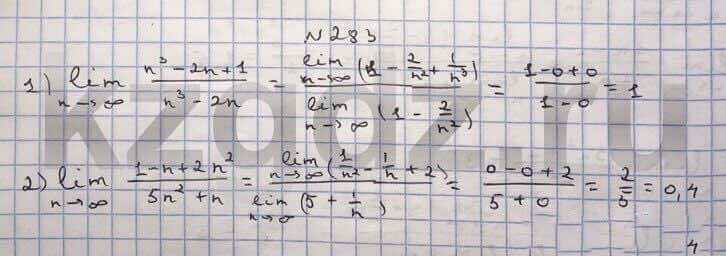 N 283
1) lim n→∞ (n³ - 2n + 1)/(n³ - 2n) = lim n→∞ (1 - 2/n² + 1/n³) / lim n→∞ (1 - 2/n²) = (1 - 0 + 0)/(1 - 0) = 1
2) lim n→∞ (1 - n + 2n²)/(5n² + n) = lim n→∞ (1/n² - 1/n + 2) / lim n→∞ (5 + 1/n) = (0 - 0 + 2)/(5 + 0) = 2/5 = 0,4
4
kzgdz.ru